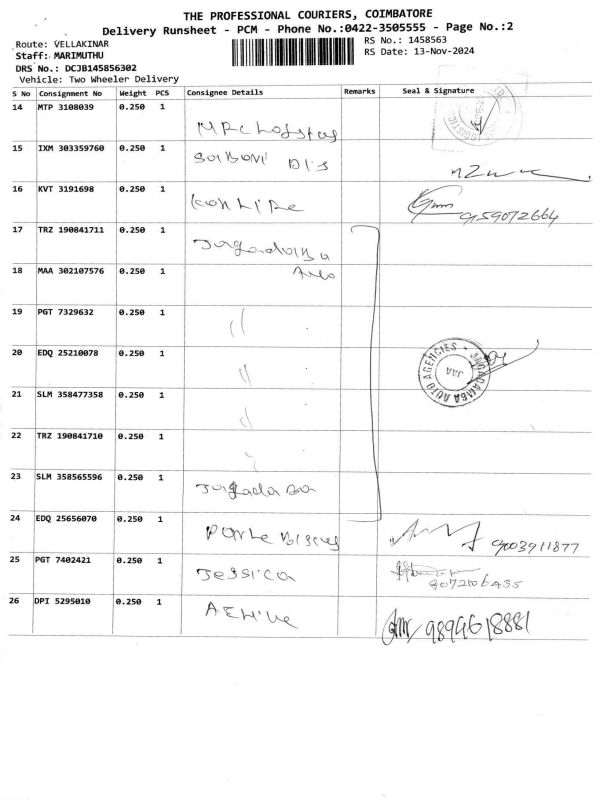 THE PROFESSIONAL COURIERS, COIMBATORE
Delivery Runsheet - PCM - Phone No.:0422-3505555 - Page No.:2
Route: VELLAKINAR
RS No.: 1458563
Staff: MARIMUTHU
RS Date: 13-Nov-2024
DRS No.: DCJB145856302
Vehicle: Two Wheeler Delivery
S No Consignment No Weight PCS Consignee Details Remarks Seal & Signature
14 MTP 3108039 0.250 1
15 IXM 303359760 0.250 1
16 KVT 3191698 0.250 1 9159072664
17 TRZ 190841711 0.250 1 Jagadamba
Auto
18 MAA 302107576 0.250 1
19 PGT 7329632 0.250 1 "
20 EDQ 25210078 0.250 1 "
JAGADAMBA AUTO AGENCIES
JAA
21 SLM 358477358 0.250 1 "
22 TRZ 190841710 0.250 1 "
23 SLM 358565596 0.250 1
24 EDQ 25656070 0.250 1 9003911877
25 PGT 7402421 0.250 1 Jessica 9072106435
26 DPI 5295010 0.250 1 9894618881